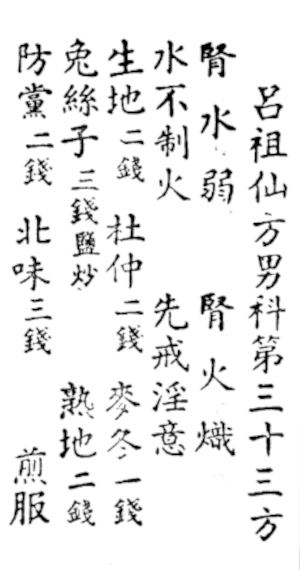 呂祖仙方男科第三十三方
腎水弱 腎火熾
水不制火 先戒淫意
生地二錢 杜仲二錢 麥冬一錢
兔絲子三錢鹽炒 熟地二錢
防黨二錢 北味三錢 煎服